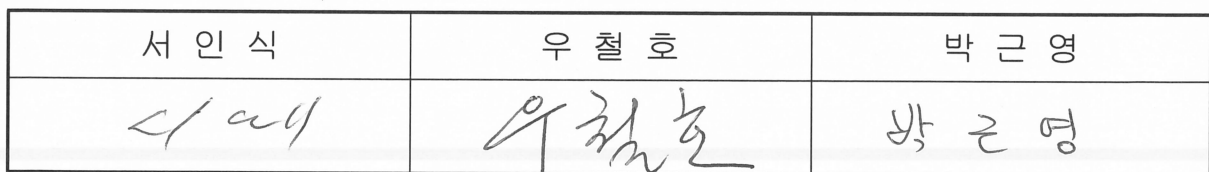 서 인 식 우 철 호 박 근 영
우철호 박근영